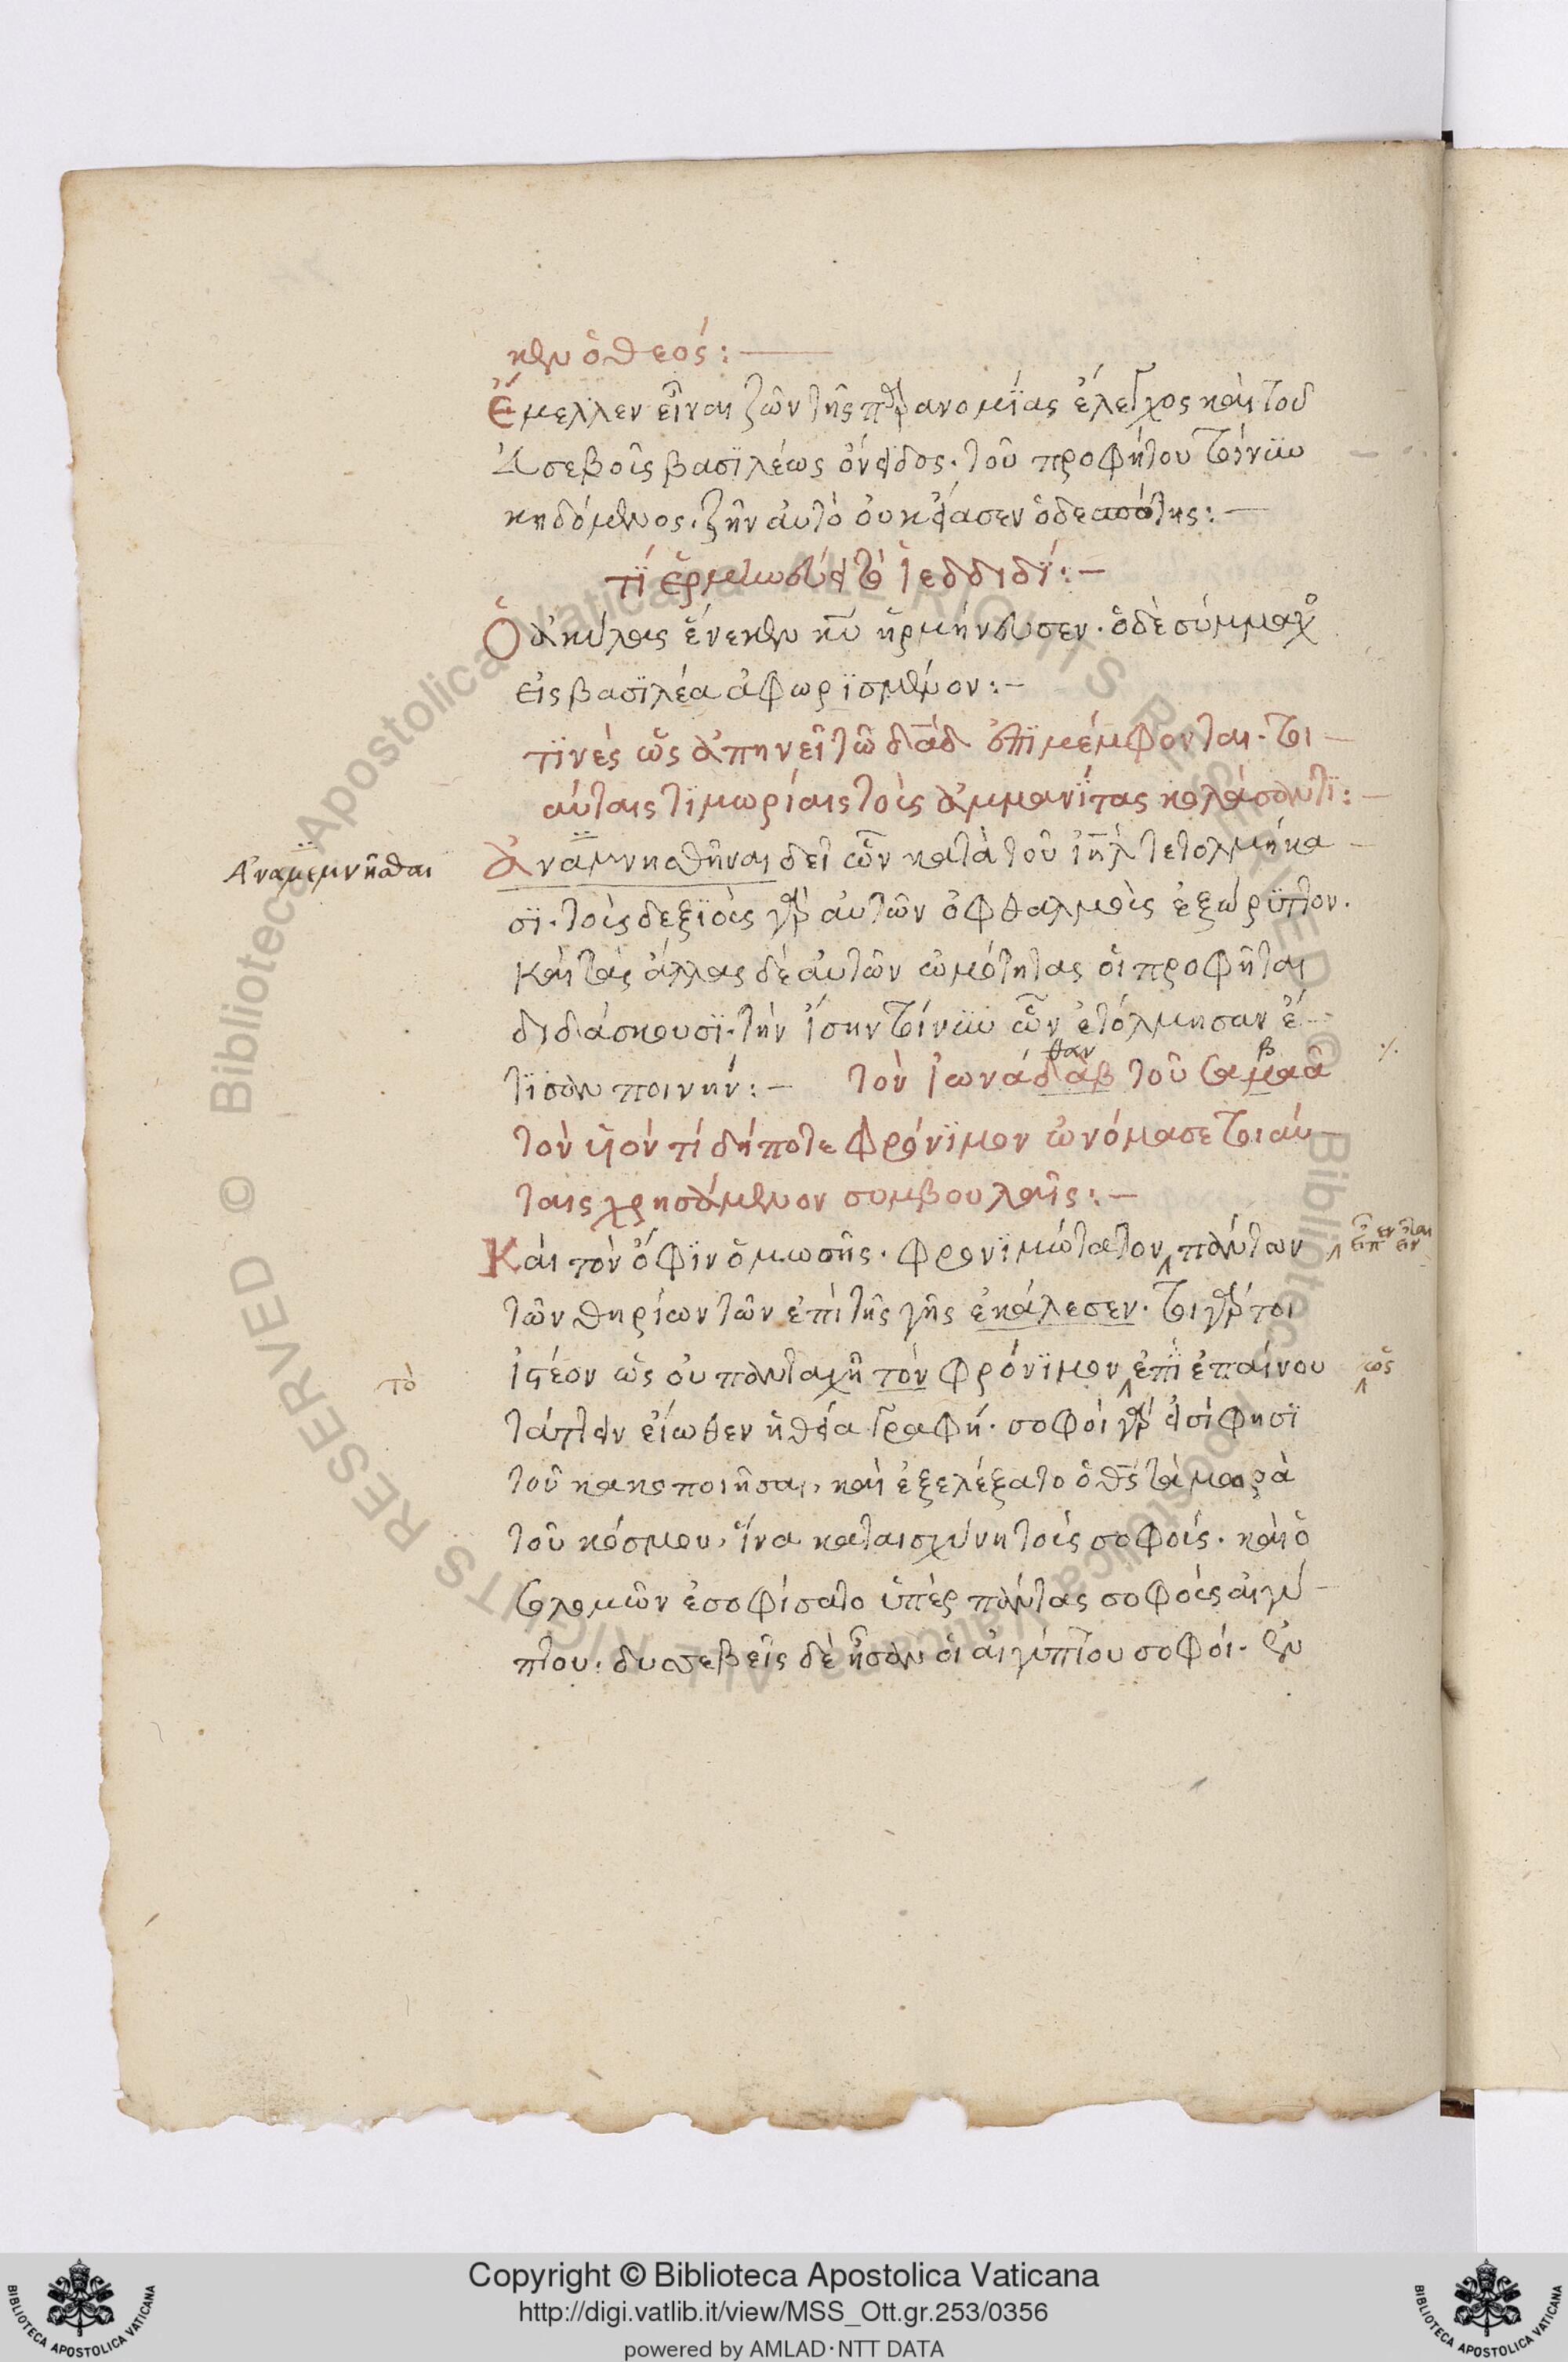 κεν ὁ θεός: —
Ἔμελλεν εἶναι ζῶν τῆς παρανομίας ἔλεγχος καὶ τοῦ
Ἀσεβοῦς βασϊλέως ὄνειδος. τοῦ προφήτου τοίνυν
κηδόμενος. ζῆν αὐτὸ οὐκ εἴασεν ὁ δεσπότης: —
τί ἑρμηνεύει τὸ ἰεδδιδί: —
Ὁ ἀκύλας ἕνεκεν κυ ἡρμήνευσεν. ὁ δὲ σύμμαχο
εἰς βασϊλέα ἀφωρϊσμένον: —
τϊνὲς ὡς ἀπηνεῖ τῶ δαδ ἐπϊμέμφονται. τοι —
αύταις τϊμωρίαις τοὺς ἀμμανίτας κολάσαντι: —
Ἀναμεμνῆσθαι
Ἀναμνησθῆναι δεῖ ὧν κατὰ τοῦ ιηλ τετολμήκα —
σϊ. τοὺς δεξϊοὺς γὰρ αὐτῶν ὀφθαλμοὺς ἐξώρϋττον.
καὶ τὰς ἄλλας δὲ αὐτῶν ὠμότητας οἱ προφῆται
διδάσκουσϊ. τὴν ἴσην τοίνυν ὧν ἐτόλμησαν ἔ —
τϊσαν ποινήν: — τὸν ἰωναδὰβ τοῦ σαμαᾶ
θαν β ·/.
τὸν υἱὸν τί δήποτε φρόνϊμον ὠνόμασε τοιαύ —
ταις χρησάμενον συμβουλαῖς: —
Καὶ τὸν ὄφϊν ὁ μωσῆς. φρονϊμώτατον πάντων
τῶν θηρίων τῶν ἐπὶ τῆς γῆς ἐκάλεσεν. τοιγάρτοι
τὸ
ἰστέον ὡς οὐ πανταχῆ τὸν φρόνϊμον ἐπῒ ἐπαίνου
ὡς
τάττειν εἴωθεν ἡ θεία γραφή. σοφοὶ γάρ εἰσί φησϊ
τοῦ κακοποιῆσαι, καὶ ἐξελέξατο ὁ θς τὰ μωρὰ
τοῦ κόσμου, ἵνα καταισχύνη τοὺς σοφούς. καὶ ὁ
σολομῶν ἐσοφίσατο ὑπὲρ πάντας σοφοὺς αἰγύ —
πτου: δυσσεβεῖς δὲ ἦσαν οἱ αἰγύπτου σοφοί. ἐν
Copyright © Biblioteca Apostolica Vaticana
http://digi.vatlib.it/view/MSS_Ott.gr.253/0356
powered by AMLAD·NTT DATA
BIBLIOTECA APOSTOLICA VATICANA
BIBLIOTECA APOSTOLICA VATICANA
Biblioteca Apostolica Vaticana ALL RIGHTS RESERVED ©